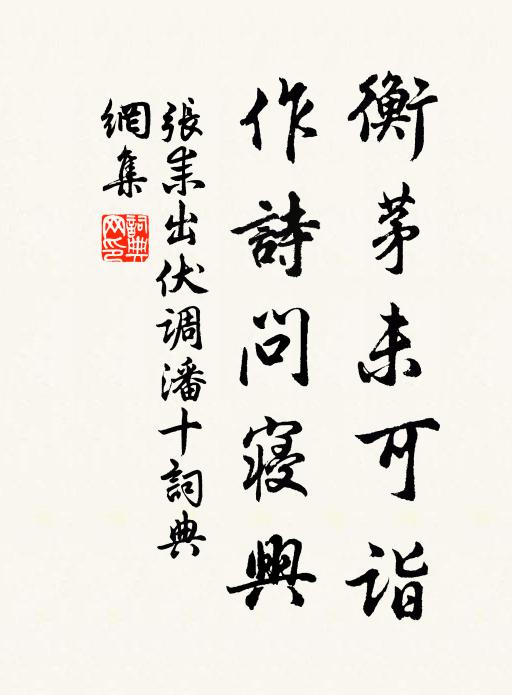 衡茅未可詣
作詩問寢興
張耒出伏调潘十詞典
網集
詞典网印